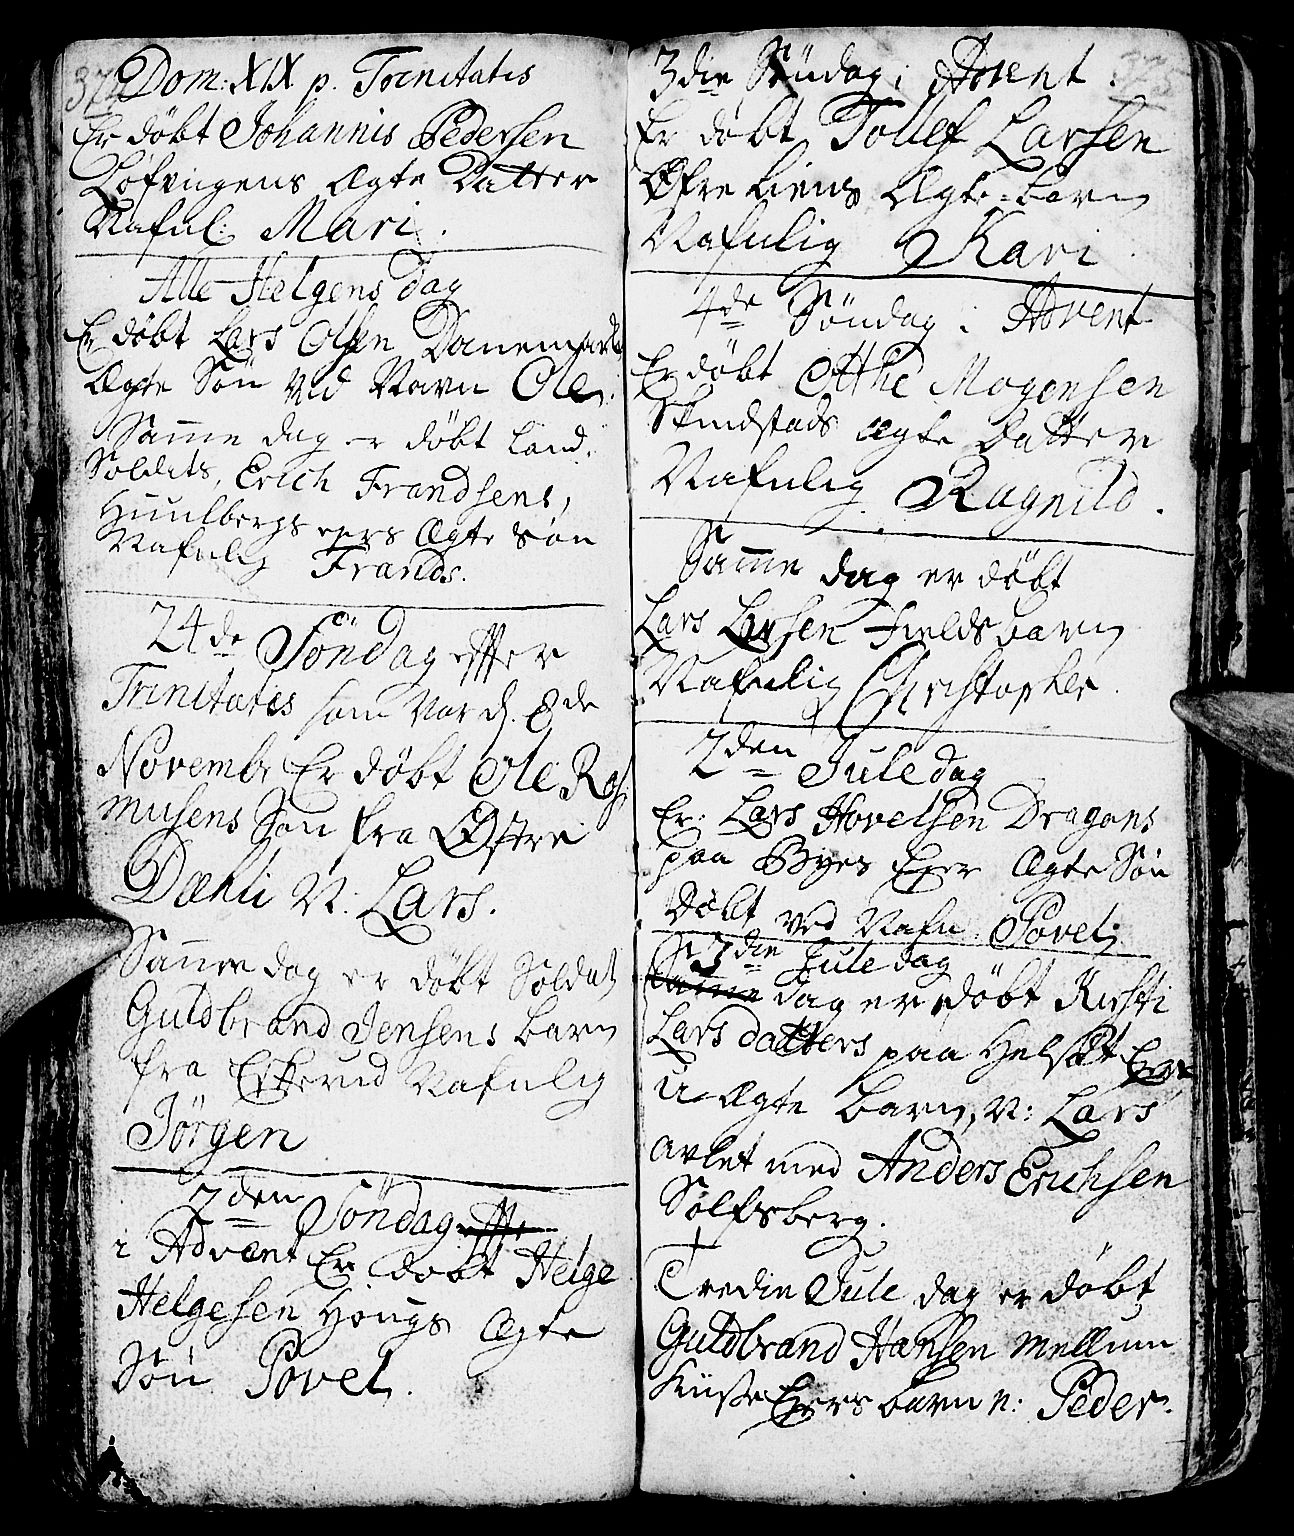 374
Dom: XIX p. Trinitatis
Er döbt Johannis Pedersen
Löfvigens Ægte Datter
Nafnl: Mari.
Alle Helgens dag
Er döbt Lars Olsen Danemark
Ægte Søn ved Navn Ole.
Samme dag er döbt Land.
Soldats, Erich Frandsens,
Huulbergs eyers Ægte Søn
Nafnlig Frands.
24de Söndag effter
Trinitatis som var d. 8de
Novembr Er döbt Ole Ras
musens Søn fra Østre
Dæhli N: Lars.
Samme dag er döbt Soldat
Guldbrand Jensens barn
fra Eskerud Nafnlig
Jörgen
2den Söndag
i Advent Er döbt Helge
Helgesen Hougs Ægte
Søn Povel.
375
3die Söndag i Advent.
Er döbt Tollef Larsen
Øfre Liens Ægte-barn
Nafnlig Kari.
4de Söndag i Advent
Er döbt Otthe Mogensen
Skindstads Ægte Datter
Nafnlig Ragnild.
Samme dag er döbt
Lars Larsen Fields barn
Nafnlig Christopher.
2den Juledag
Er: Lars Hovelsen Dragons
paa Byes Eyer Ægte Søn
Döbt ved Nafn Povel;
3die Jule dag
dag er döbt Kirsti
Lars datters paa Helset Eyer
u-Ægte barn, N: Lars
avlet med Anders Erichsen
Sølfsberg.
Tredie Jule dag er döbt
Guldbrand Hansen Mellum
Kiuste Eyers barn n: Peder.